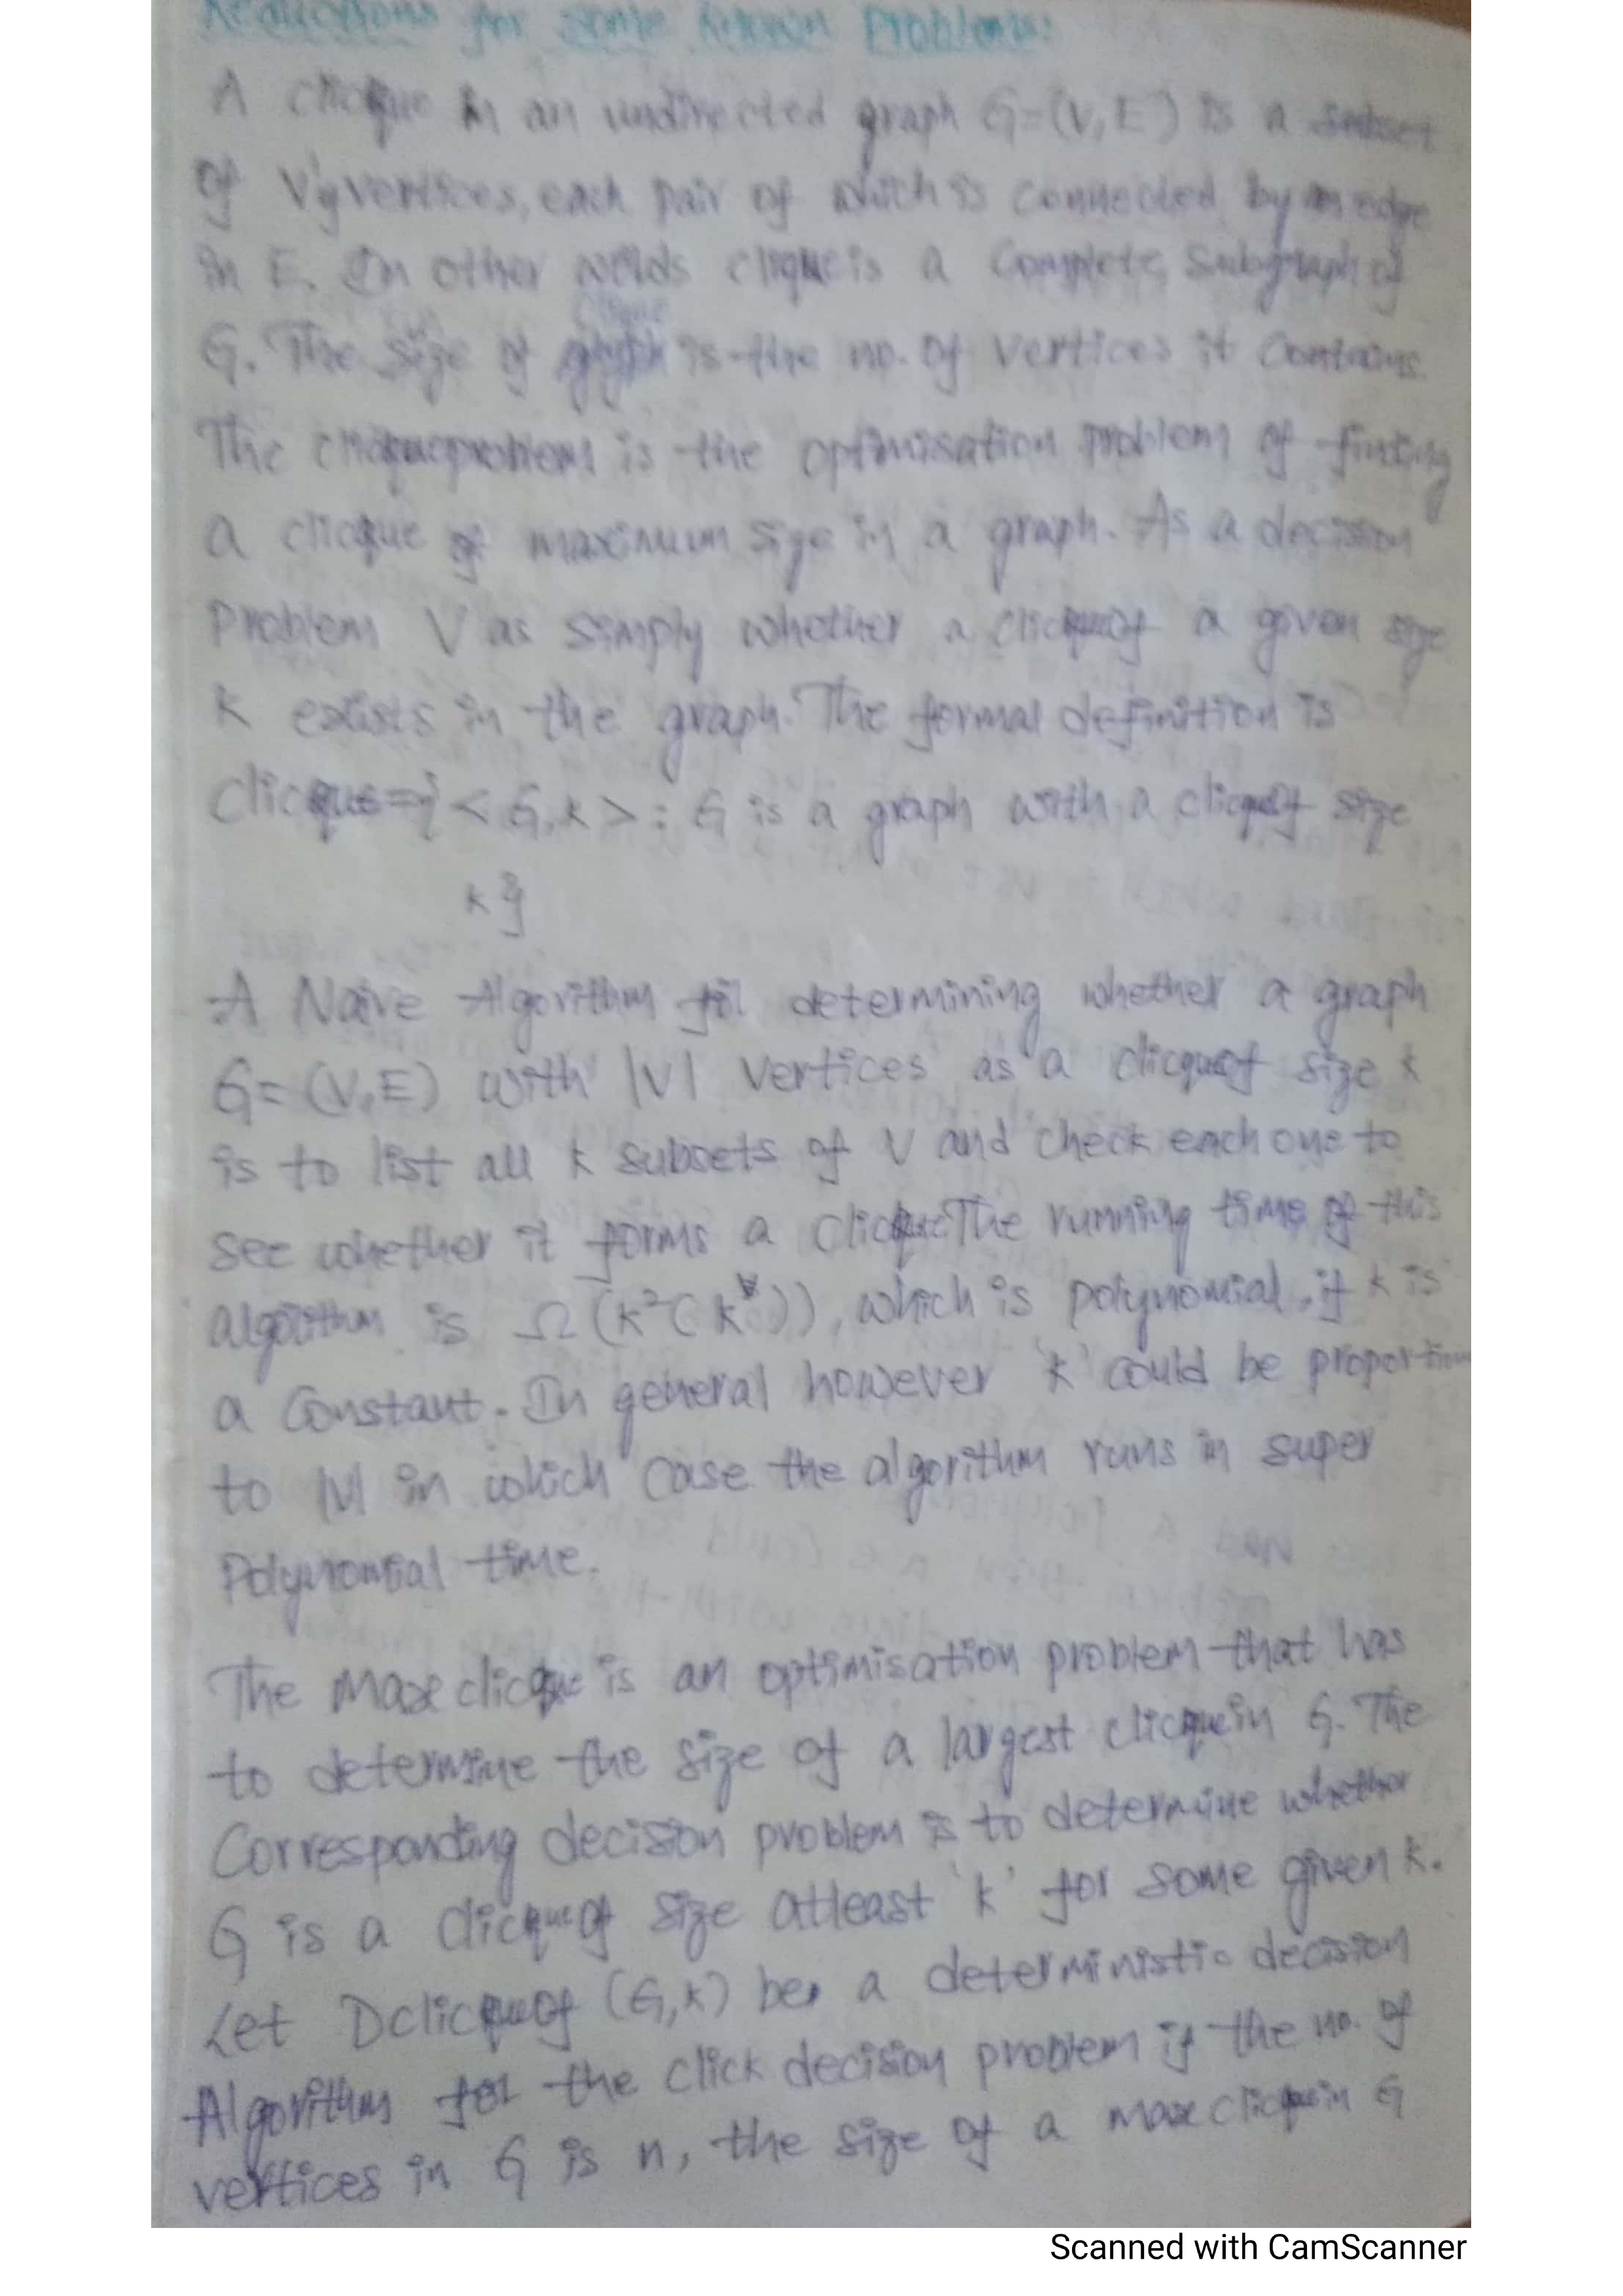 Reductions for some known Problems:
A clicque in an undirected graph G=(V,E) is a subset
of V' vertices, each pair of which is connected by an edge
in E. In other words clique is a complete subgraph of
clique
G. The size of is the no. of vertices it contains.
The clicque problem is the optimisation problem of finding
a clicque of maximum size in a graph. As a decision
Problem V as simply whether a clicque of a given size
k exists in the graph. The formal definition is
Clicque={ < G,k > : G is a graph with a clicque of size
k }
A Naive Algorithm for determining whether a graph
G= (V,E) with |V| vertices as a clicque of size k
is to list all k subsets of V and check each one to
see whether it forms a clicque The running time of this
algorithm is Ω (k²( k^V)), which is polynomial, if k is
a constant. In general however 'k' could be proportion
to |V| in which case the algorithm runs in super
Polynomial time.
The Max clicque is an optimisation problem that has
to determine the size of a largest clicque in G. The
Corresponding decision problem is to determine whether
G is a clicque of size atleast 'k' for some given k.
Let Dclicque of (G,k) be a deterministic decision
Algorithm for the click decision problem if the no. of
vertices in G is n, the size of a max clicque in G
Scanned with CamScanner